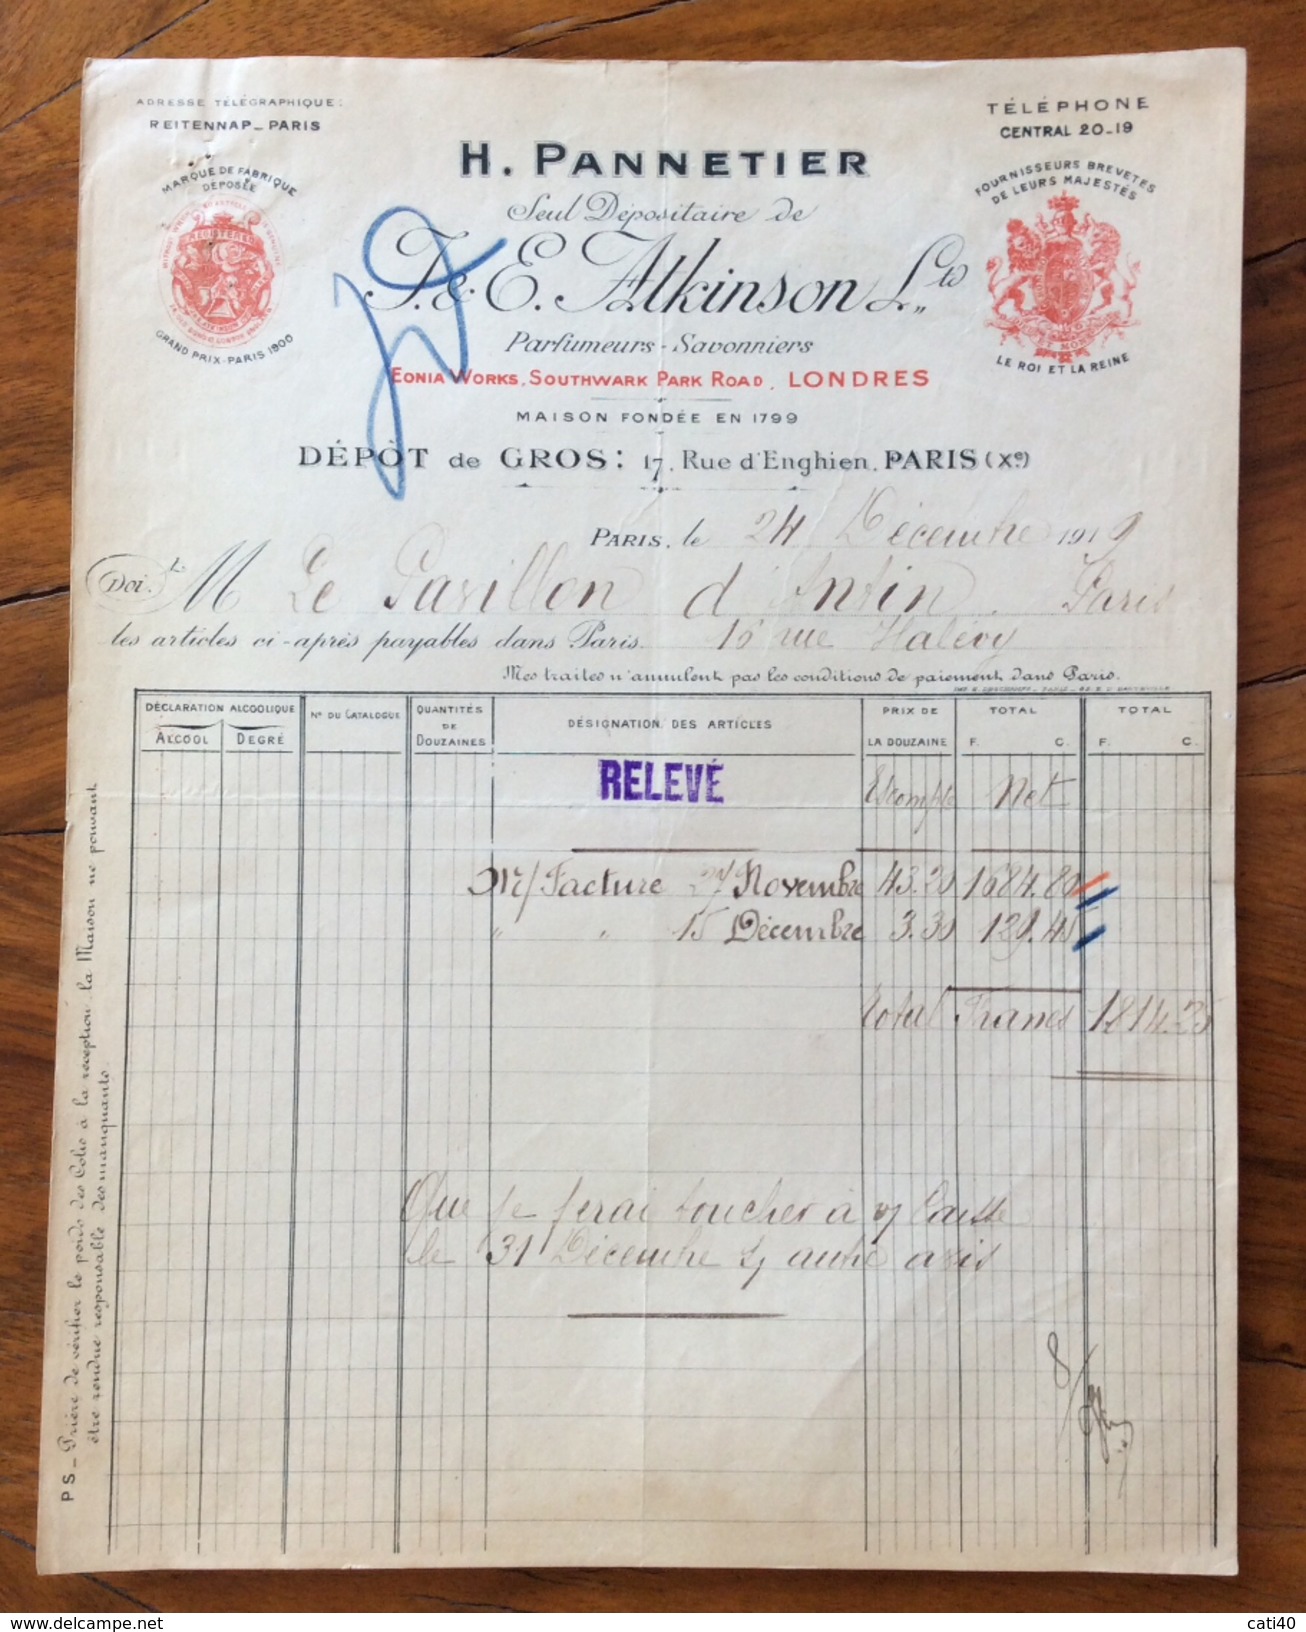 ADRESSE TÉLÉGRAPHIQUE:
REITENNAP_PARIS
TÉLÉPHONE
CENTRAL 20-19
MARQUE DE FABRIQUE
DÉPOSÉE
REGISTERED
GRAND PRIX-PARIS 1900
FOURNISSEURS BREVETÉS
DE LEURS MAJESTÉS
LE ROI ET LA REINE
H. PANNETIER
Seul Dépositaire de
J. & E. Atkinson Ltd
Parfumeurs-Savonniers
EONIA WORKS, SOUTHWARK PARK ROAD, LONDRES
MAISON FONDÉE EN 1799
DÉPÔT de GROS: 17, Rue d'Enghien, PARIS (Xe)
PARIS, le 24 Décembre 1919
Doit M Le Pavillon d'Antin. Paris
les articles ci-après payables dans Paris. 16 rue Halévy
Mes traites n'annulent pas les conditions de paiement dans Paris.
DÉCLARATION ALCOOLIQUE
ALCOOL DEGRÉ
N° DU CATALOGUE
QUANTITÉS
DE
DOUZAINES
DÉSIGNATION DES ARTICLES
PRIX DE
LA DOUZAINE
TOTAL
F. C.
TOTAL
F. C.
RELEVÉ
Escompte Net
M/ Facture 27 Novembre 43.20 1684.80
" " 15 Décembre 3.30 129.45
Total Francs 1814.25
Que je ferai toucher à v/ Caisse
le 31 Décembre s/ autre avis
PS_Prière de vérifier le poids des Colis à la réception, la Maison ne pouvant
être rendue responsable des manquants.
www.delcampe.net
cati40